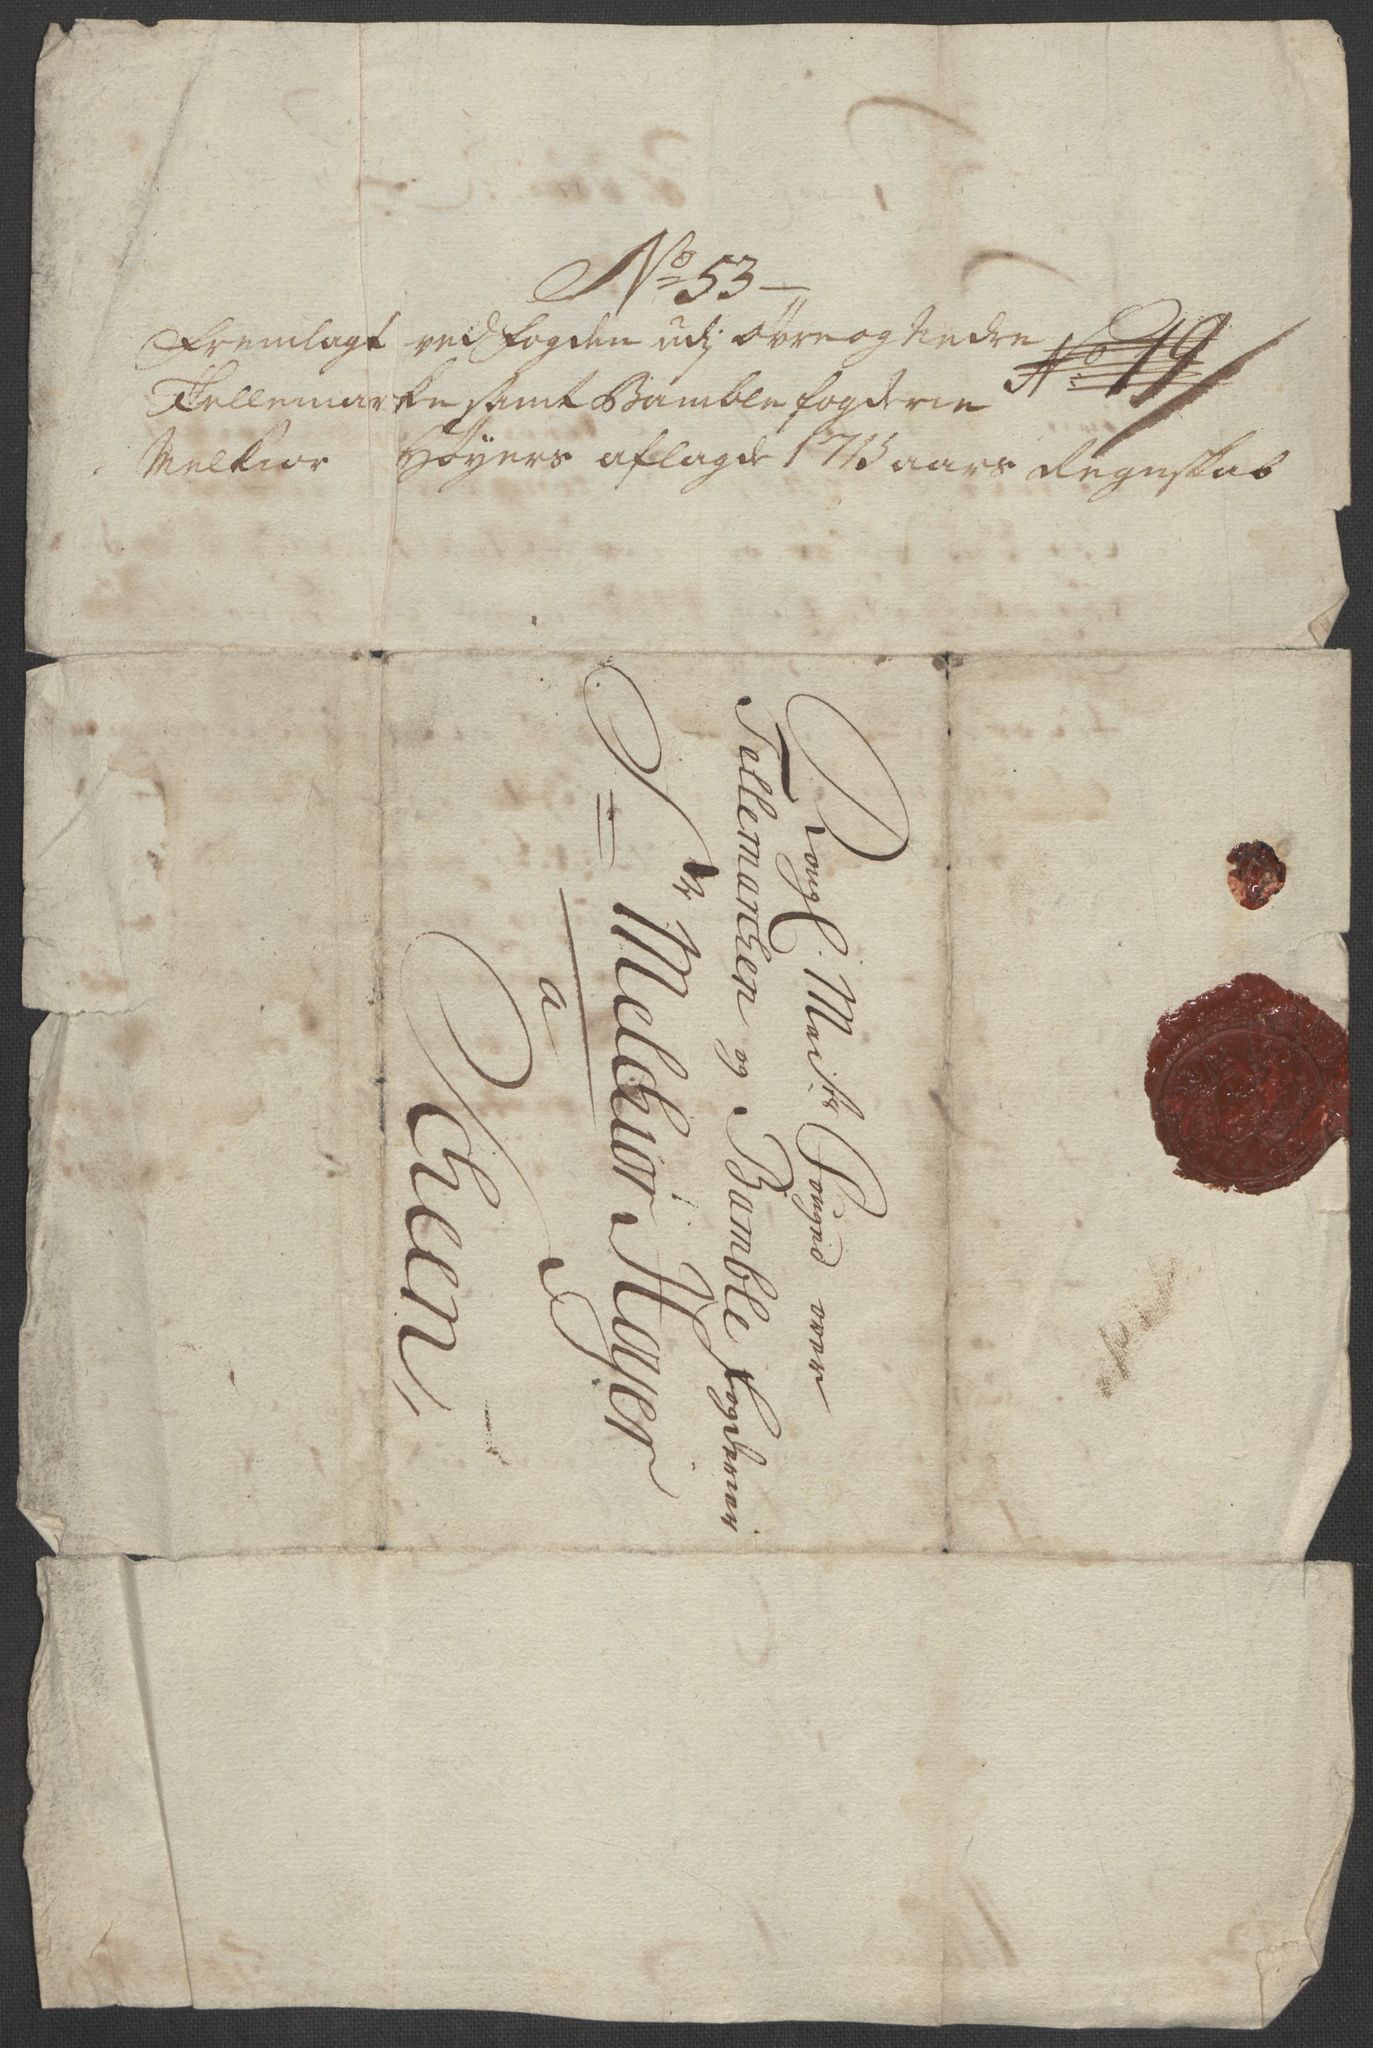 No 53
Fremlagt ved fogden udj øvre og Nedre
Tellemarken samt Bamble fogderie
Melkior Høyers aflagde 1715 aars Regnskab
No 19
Kongl. Maist. Fouged over
Tellemarken og Bamble fogderier
Sr Melchior Høyer
a
Scheen,